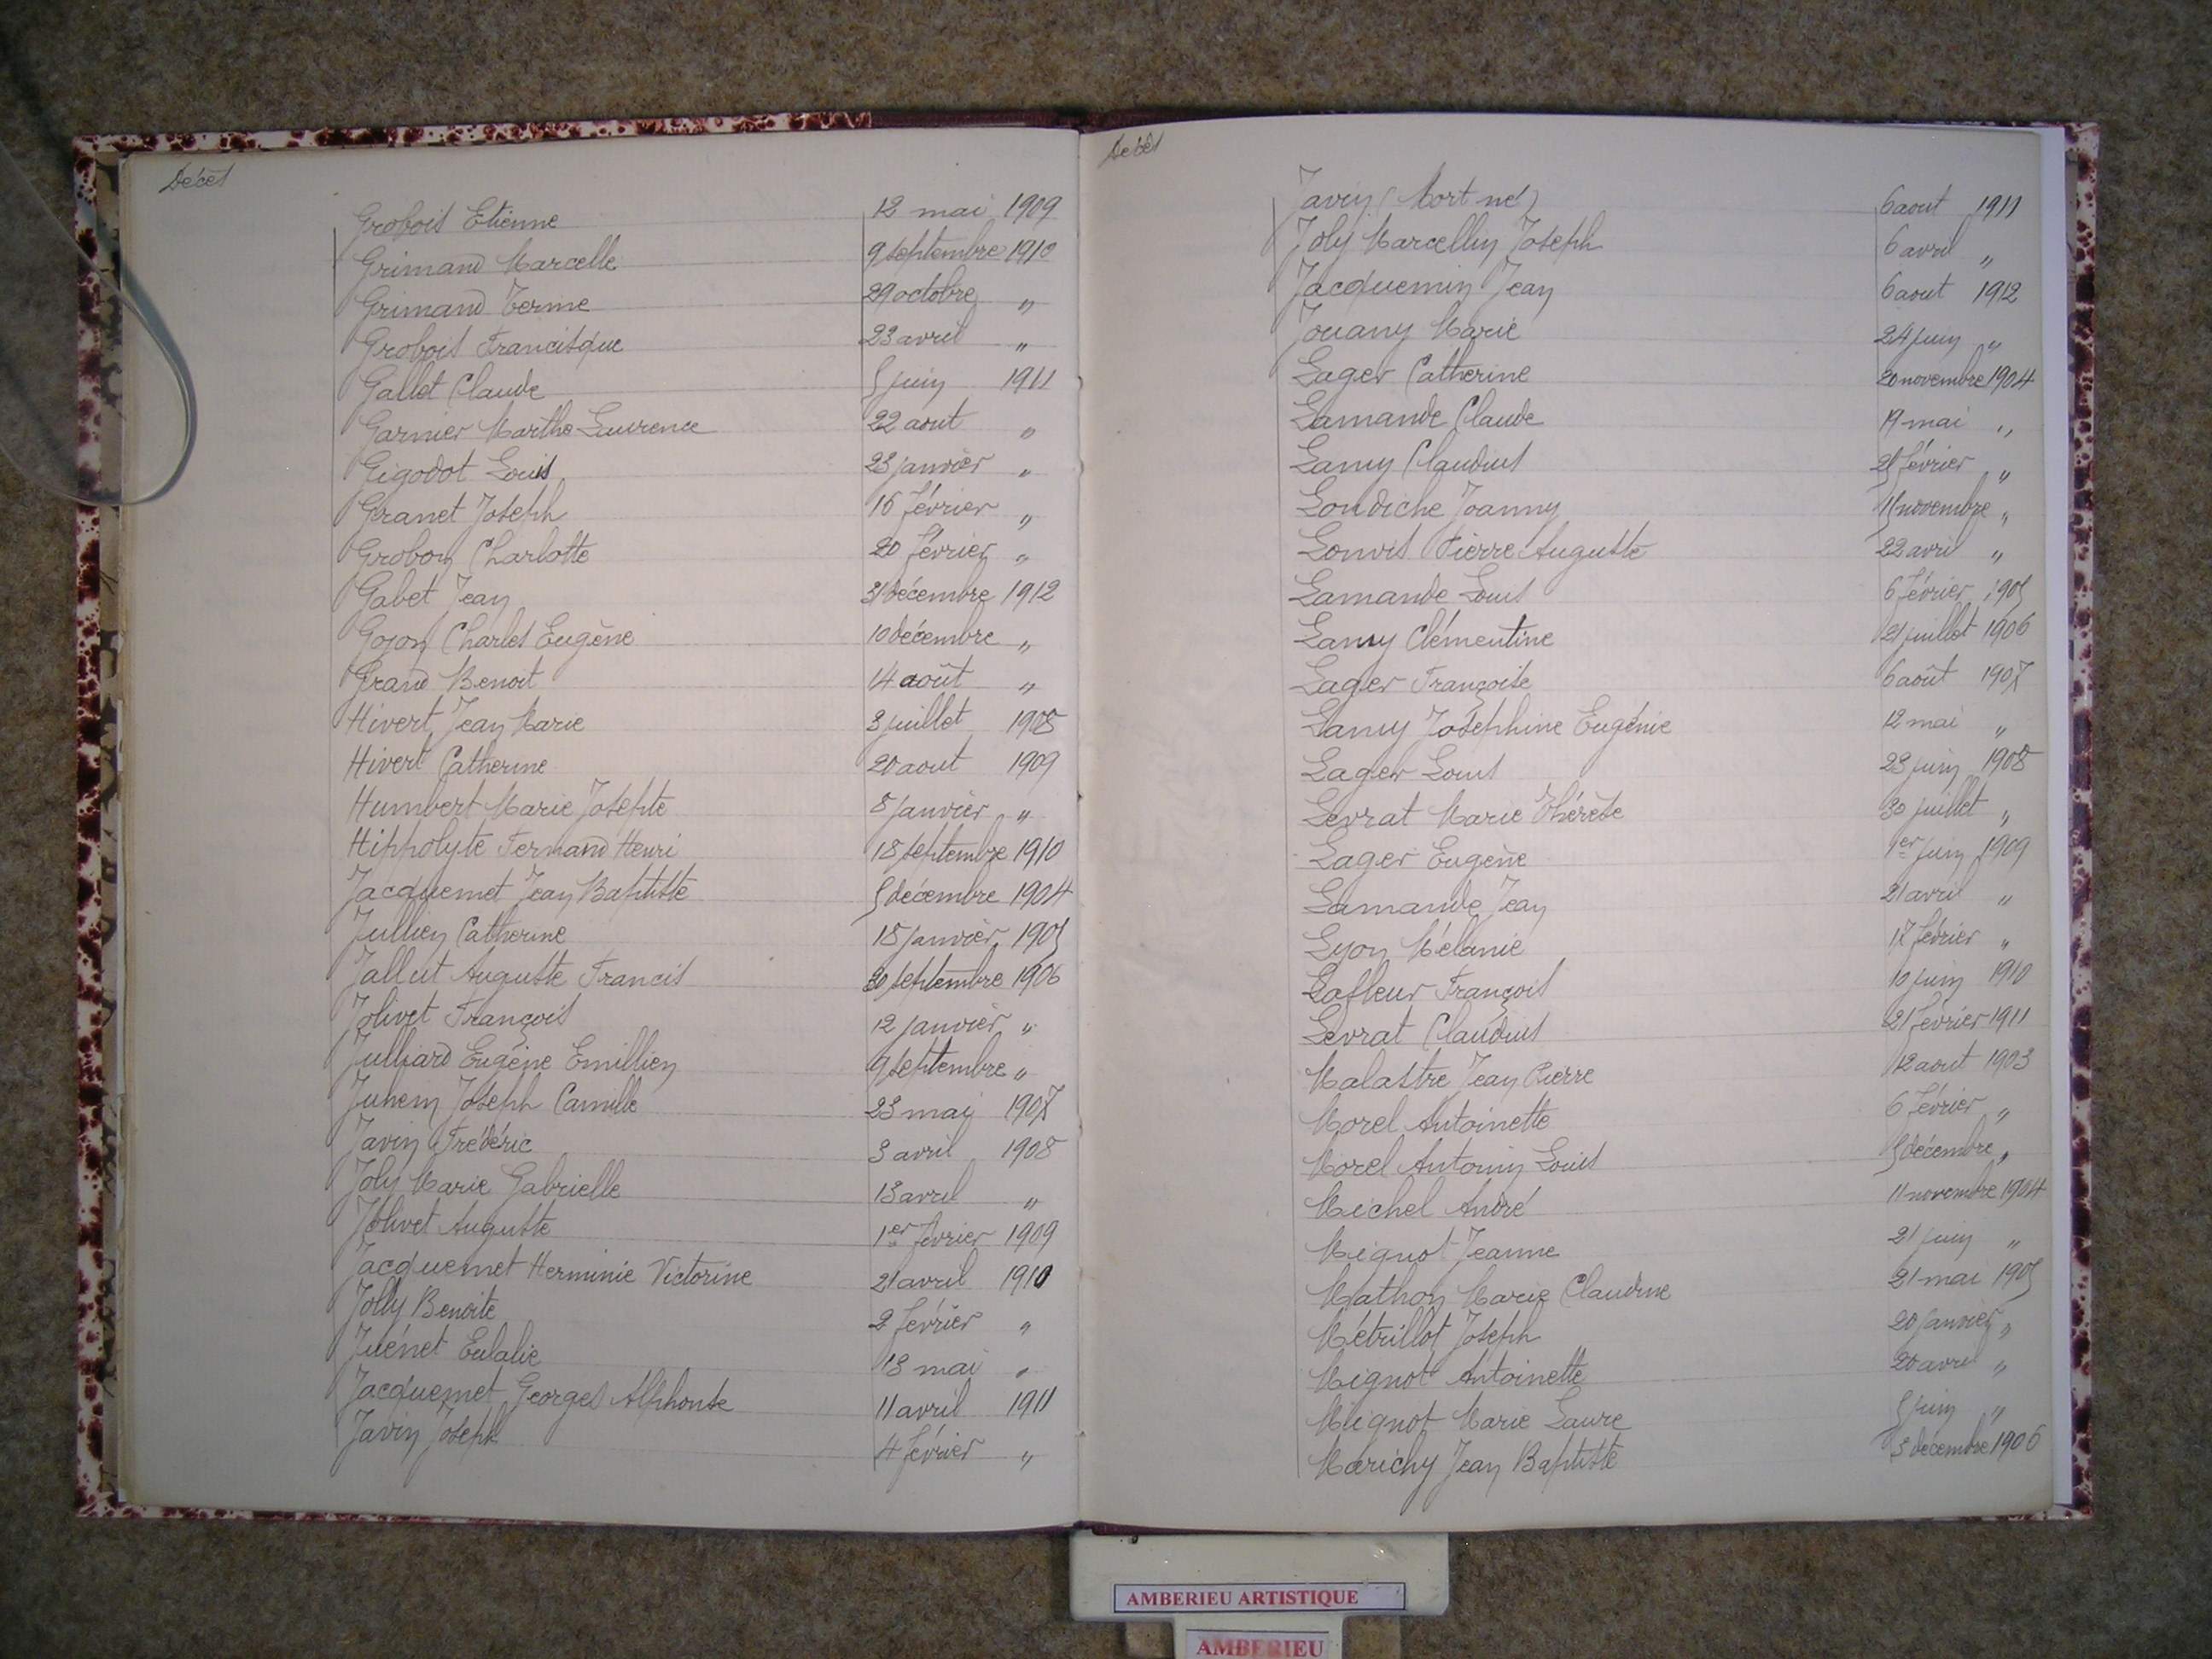 Décès
Grobois Etienne 12 mai 1909
Grimand Marcelle 9 septembre 1910
Grimand Terme 29 octobre "
Grobois Francisque 23 avril "
Gallet Claude 5 juin 1911
Garnier Marthe Laurence 22 aout "
Gigodot Louis 23 janvier "
Granet Joseph 16 février "
Grobon Charlotte 20 février "
Gabet Jean 31 décembre 1912
Gojon Charles Eugène 10 décembre "
Grand Benoit 14 août "
Hivert Jean Marie 3 juillet 1908
Hivert Catherine 20 aout 1909
Humbert Marie Josephte 8 janvier "
Hippolyte Fernand Henri 18 septembre 1910
Jacquemet Jean Baptiste 5 décembre 1904
Jullien Catherine 18 janvier 1905
Jallut Auguste Francis 30 septembre 1906
Jolivet François 12 janvier "
Julliard Eugéne Emillien 9 septembre "
Juhem Joseph Camille 23 mai 1907
Javin Frédéric 3 avril 1908
Joly Marie Gabrielle 13 avril "
Jolivet Auguste 1er février 1909
Jacquemet Herminie Victorine 21 avril 1910
Jolly Benoite 2 février "
Juénet Eulalie 13 mai "
Jacquemet Georges Alphonse 11 avril 1911
Javin Joseph 4 février "
Décès
Javin (Mort né) 6 aout 1911
Joly Marcellin Joseph 6 avril "
Jacquemin Jean 6 aout 1912
Jouany Marie 24 juin "
Lager Catherine 20 novembre 1904
Lamande Claude 19 mai "
Lamy Claudius février "
Londiche Joanny novembre "
Louvis Pierre Auguste 22 avril "
Lamande Louis 6 février 1905
Lamy Clémentine 21 juillet 1906
Lager Françoise 6 août 1907
Lamy Joséphine Eugénie 12 mai "
Lager Louis 23 juin 1908
Levrat Marie Thérèse 30 juillet "
Lager Eugène 1er juin 1909
Lamande Jean 21 avril "
Lyon Mélanie 17 février "
Lafleur François 10 juin 1910
Levrat Claudius 21 février 1911
Malastre Jean Pierre 12 aout 1903
Morel Antoinette 6 février "
Morel Antonin Louis 5 décembre "
Michel André 11 novembre 1904
Mignot Jeanne 21 juin "
Mathon Marie Claudine 21 mai 1905
Métrillot Joseph 20 janvier "
Mignot Antoinette 20 avril "
Mignot Marie Laure 5 juin "
Marichy Jean Baptiste 3 décembre 1906
AMBERIEU ARTISTIQUE
AMBERIEU